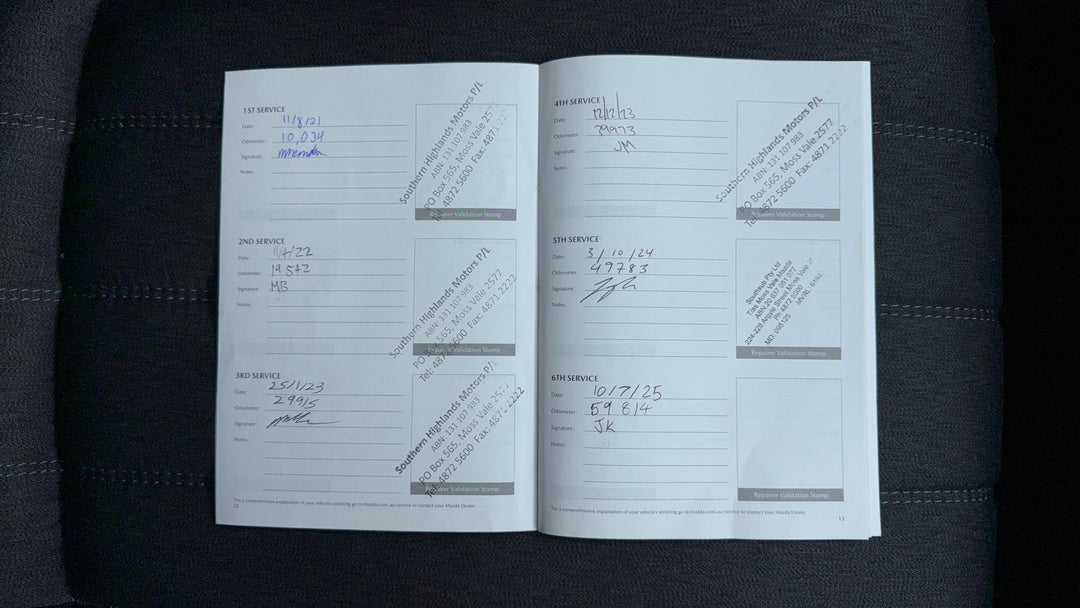 1ST SERVICE
Date: 11/8/21
Odometer: 10,034
Signature:
Notes:
Southern Highlands Motors P/L
ABN: 131 107 983
PO Box 565, Moss Vale 2577
Tel: 4872 5600 Fax: 4871 2222
Repairer Validation Stamp
2ND SERVICE
Date: 11/4/22
Odometer: 19542
Signature: MB
Notes:
Southern Highlands Motors P/L
ABN: 131 107 983
PO Box 565, Moss Vale 2577
Tel: 4872 5600 Fax: 4871 2222
Repairer Validation Stamp
3RD SERVICE
Date: 25/1/23
Odometer: 29915
Signature:
Notes:
Southern Highlands Motors P/L
ABN: 131 107 983
PO Box 565, Moss Vale 2577
Tel: 4872 5600 Fax: 4871 2222
Repairer Validation Stamp
*For a comprehensive explanation of your vehicle's servicing go to mazda.com.au/service or contact your Mazda Dealer
12
4TH SERVICE
Date: 12/12/23
Odometer: 39973
Signature: JM
Notes:
Southern Highlands Motors P/L
ABN: 131 107 983
PO Box 565, Moss Vale 2577
Tel: 4872 5600 Fax: 4871 2222
Repairer Validation Stamp
5TH SERVICE
Date: 3/10/24
Odometer: 49783
Signature:
Notes:
Southsub Pty Ltd
Moss Vale Mazda
ABN 20 637 081 077
224-228 Argyle Street Moss Vale
Ph 4872 5000
MD 095125 MVRL
Repairer Validation Stamp
6TH SERVICE
Date: 10/7/25
Odometer: 59814
Signature: JK
Notes:
Repairer Validation Stamp
*For a comprehensive explanation of your vehicle's servicing go to mazda.com.au/service or contact your Mazda Dealer
13